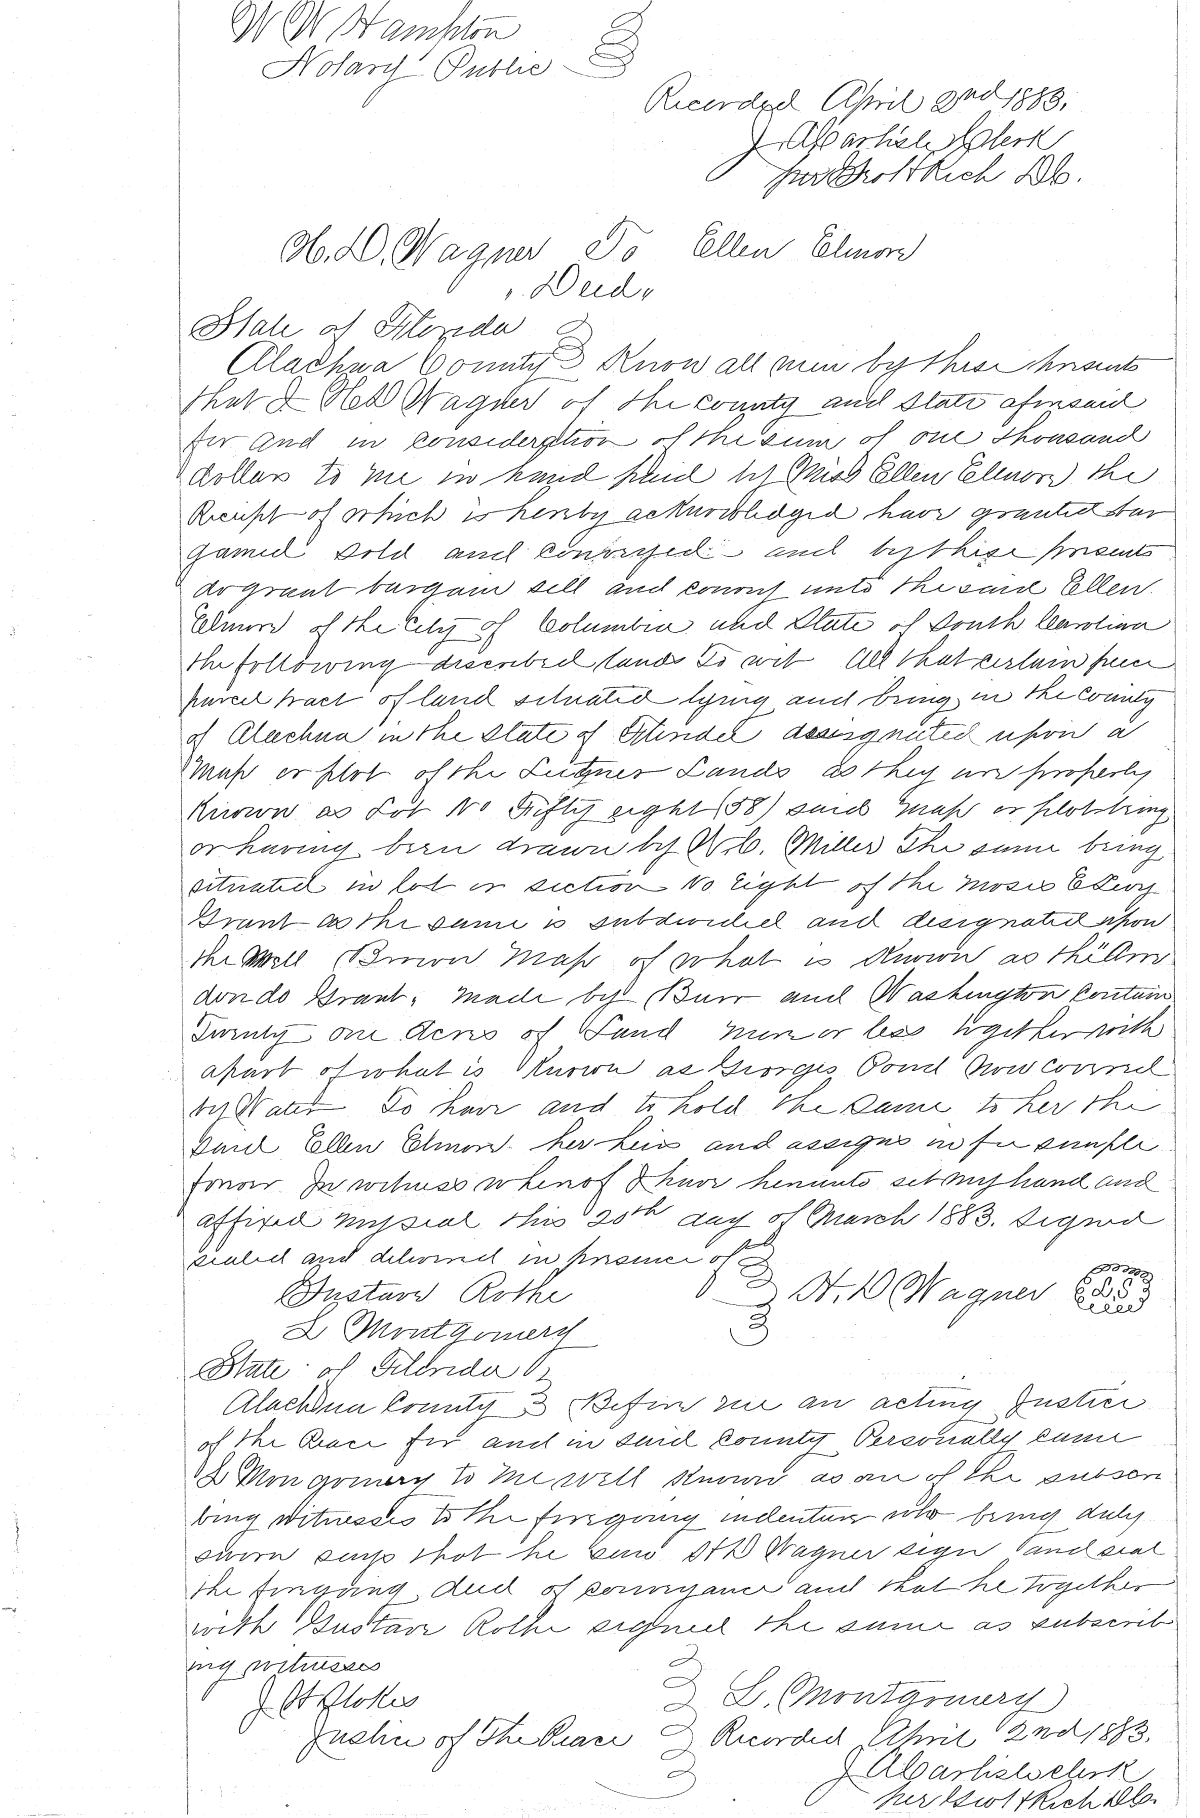 W W Hampton
Notary Public
Recorded April 2nd 1883.
J. A Carlisle Clerk
per Rich D C.
H. D. Wagner To Ellen Elmore
"Deed"
State of Florida
Alachua County Know all men by these presents
that I H D Wagner of the county and State aforesaid
for and in consideration of the sum of one thousand
dollars to me in hand paid by Miss Ellen Elmore the
Receipt of which is hereby acknowledged have granted bar
gained sold and conveyed and by these presents
do grant bargain sell and convey unto the said Ellen
Elmore of the City of Columbia and State of South Carolina
the following described lands To wit All that certain piece
parcel tract of land situated lying and being in the County
of Alachua in the State of Florida designated upon a
Map or plot of the Lands as they are properly
Known as Lot No Fifty eight (58) said map or plot being
or having been drawn by N. C. Miller The same being
situated in lot or section No Eight of the Moses E Levy
Grant as the same is subdivided and designated upon
the Brown Map of what is Known as the Arre
dondo Grant, Made by Burr and Washington Contain
Twenty one Acres of Land more or less together with
apart of what is Known as Georges Pond Now Covered
by Water To have and to hold the Same to her the
Said Ellen Elmore her heirs and assigns in fee simple
forever In witness whereof I have hereunto set my hand and
affixed my seal this 20th day of March 1883. Signed
sealed and delivered in presence of
Gustave Rothe H. D Wagner L.S
L Montgomery
State of Florida
Alachua County Before me an acting Justice
of the Peace for and in said County Personally came
L Mongomery to me well Known as one of the subscri
bing witnesses to the foregoing indenture who being duly
sworn says that he saw H D Wagner sign and seal
the foregoing deed of conveyance and that he together
with Gustave Rothe signed the same as subscrib
ing witnesses
J H Stokes L. Montgomery
Justice of The Peace Recorded April 2nd 1883.
J A Carlisle clerk
per Rich D C.